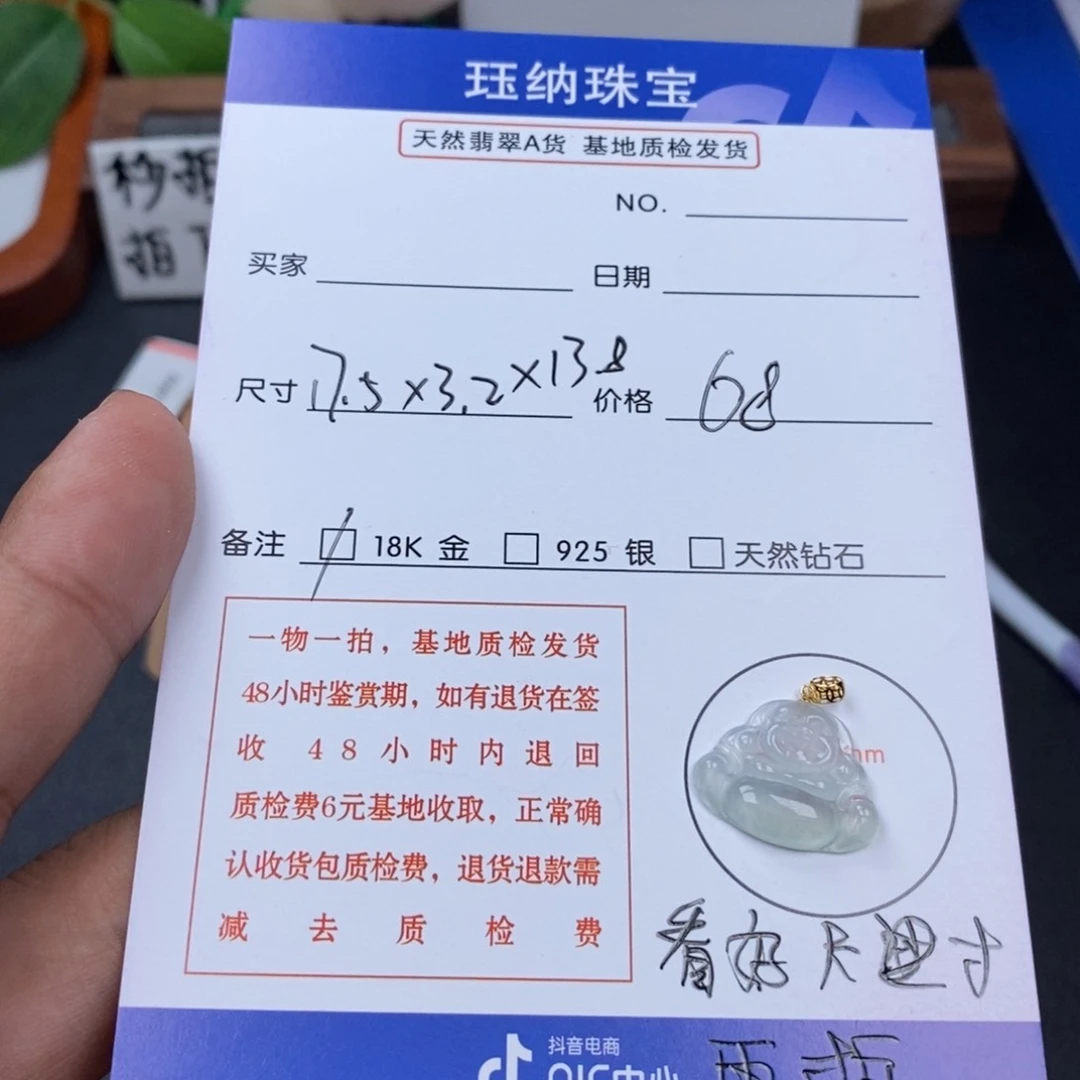 珏纳珠宝
天然翡翠A货 基地质检发货
NO.
买家 日期
尺寸 17.5×3.2×13.8 价格 68
备注 18K 金 925 银 天然钻石
一物一拍，基地质检发货
48小时鉴赏期，如有退货在签
收48小时内退回
质检费6元基地收取，正常确
认收货包质检费，退货退款需
减去质检费
mm
看好尺寸
抖音电商
QIC中心
秒拍
指